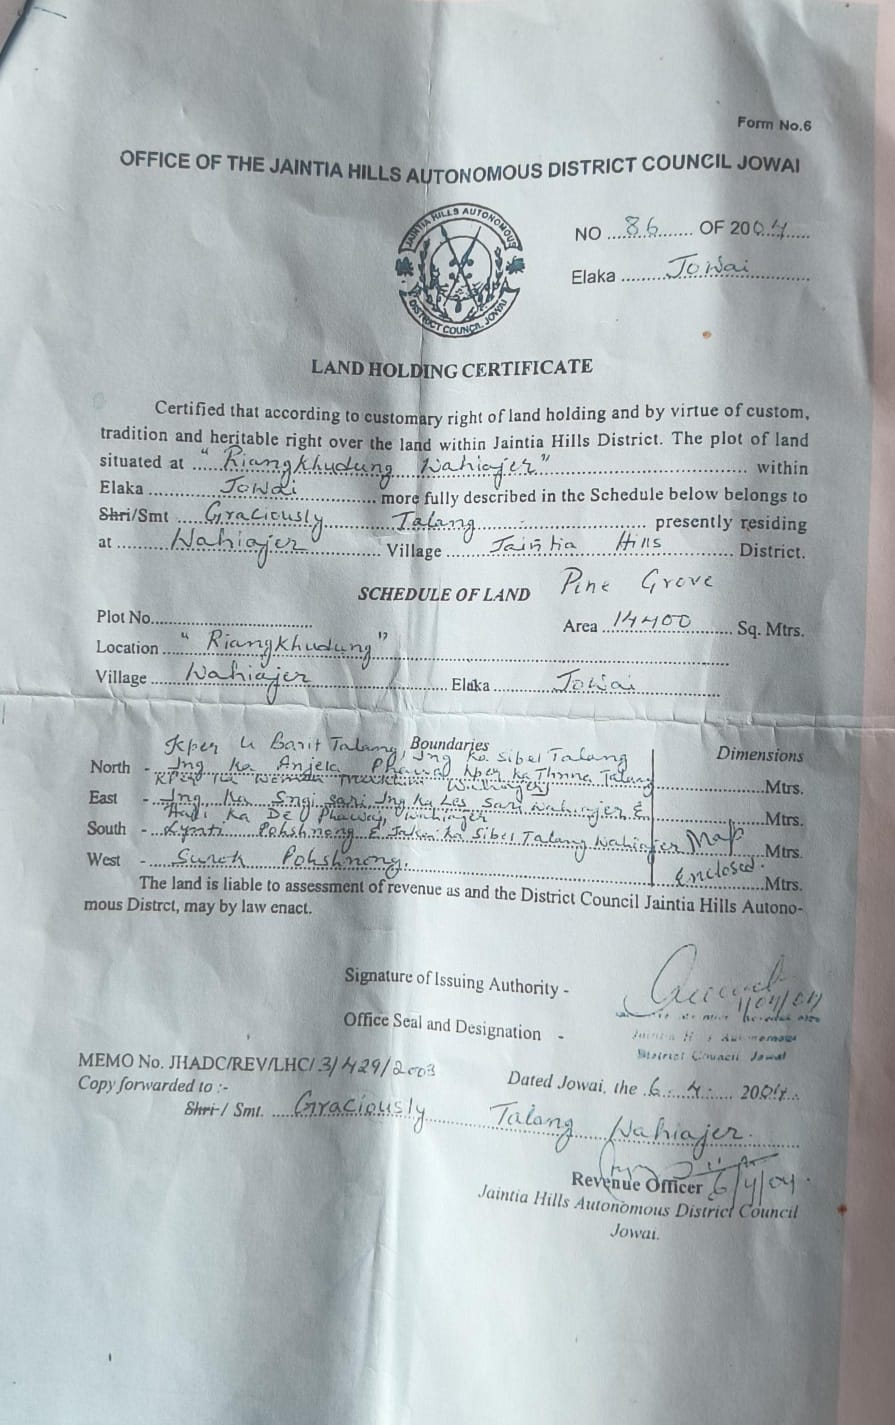 Form No.6
OFFICE OF THE JAINTIA HILLS AUTONOMOUS DISTRICT COUNCIL JOWAI
JAINTIA HILLS AUTONOMOUS
DISTRICT COUNCIL JOWAI
NO ....86....... OF 2004.....
Elaka ........Jowai..............
LAND HOLDING CERTIFICATE
Certified that according to customary right of land holding and by virtue of custom,
tradition and heritable right over the land within Jaintia Hills District. The plot of land
situated at ..."Riangkhudung Wahiajer"................................. within
Elaka ............Jowai................. more fully described in the Schedule below belongs to
Shri/Smt .....Graciously..........Talang............................ presently residing
at ..........Wahiajer............. Village .......Jaintia Hills............. District.
SCHEDULE OF LAND Pine Grove
Plot No...................................
Area ..14400......... Sq. Mtrs.
Location ...."Riangkhudung"..........................................................
Village......Wahiajer.................... Elaka ............Jowai................
Kper u Barit Talang, Jng Ka Sibel Talang
Boundaries Dimensions
North - Jng Ka Anjela Kper Ka Talang ..........Mtrs.
East - Jng Ka Sngi Sari Jng Ka Les Sari Wahiajer E ..........Mtrs.
Ka De Wahiajer
South - Pohshnong E Ka Sibel Talang Wahiajer Map ....Mtrs.
West - Surok Pohshnong. Enclosed. ....Mtrs.
The land is liable to assessment of revenue as and the District Council Jaintia Hills Autono-
mous Distrct, may by law enact.
Signature of Issuing Authority -
Office Seal and Designation -
Jaintia Hills Autonomous
District Council Jowai
MEMO No. JHADC/REV/LHC/3/429/2003
Dated Jowai, the .6...4....... 2004..
Copy forwarded to :-
Shri-/ Smt. ....Graciously............Talang......Wahiajer............
6/4/04.
Revenue Officer
Jaintia Hills Autonomous District Council
Jowai.